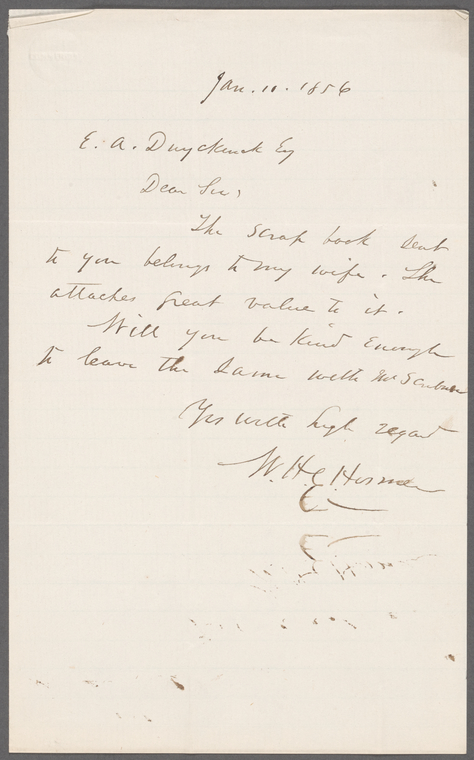 Jan. 10. 1856
E. A. Duyckinck Esq
Dear Sir,
The scrap book sent
to you belongs to my wife. She
attaches great value to it.
Will you be kind enough
to leave the same with Mr Scribner
Yrs with high regard
W. H. C. Hosmer